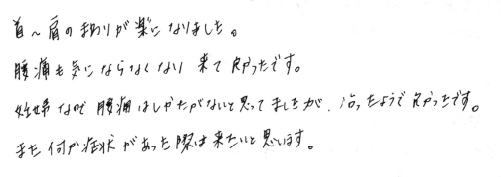 首～肩のまわりが楽になりました。
腰痛も気にならなくなり 来て良かったです。
妊婦なので腰痛はしかたがないと思ってましたが、治ったようで良かったです。
また何か症状があった際は来たいと思います。